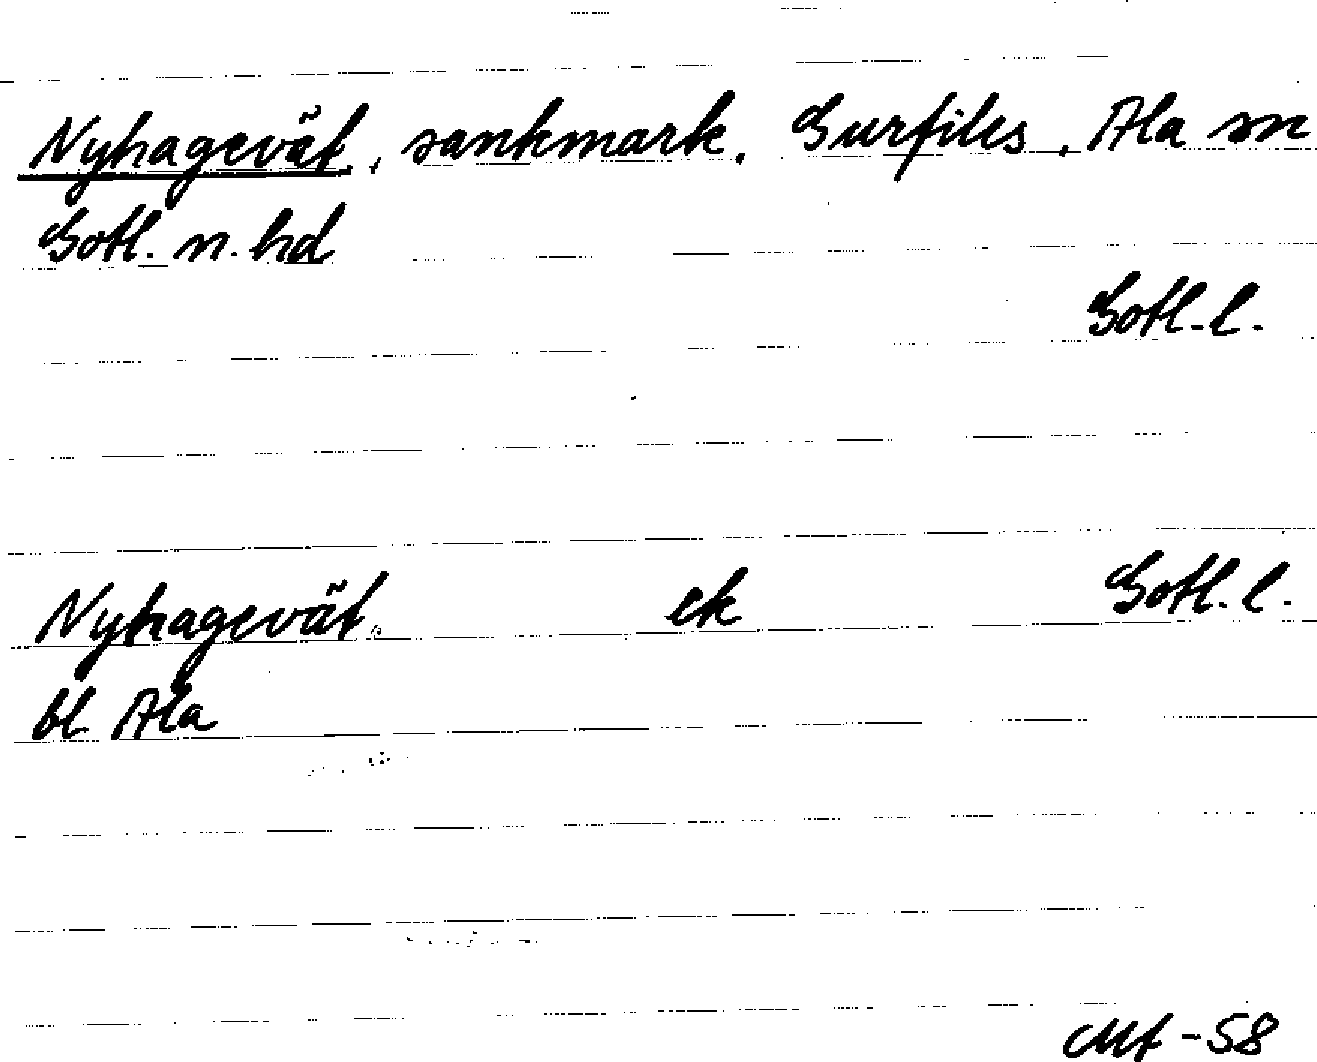 Nyhagevät, sankmark. Gurfiles, Ala sn
Gotl. n. hd
Gotl. l.
Nyhagevät. ek Gotl. l.
bl. Ala
-58